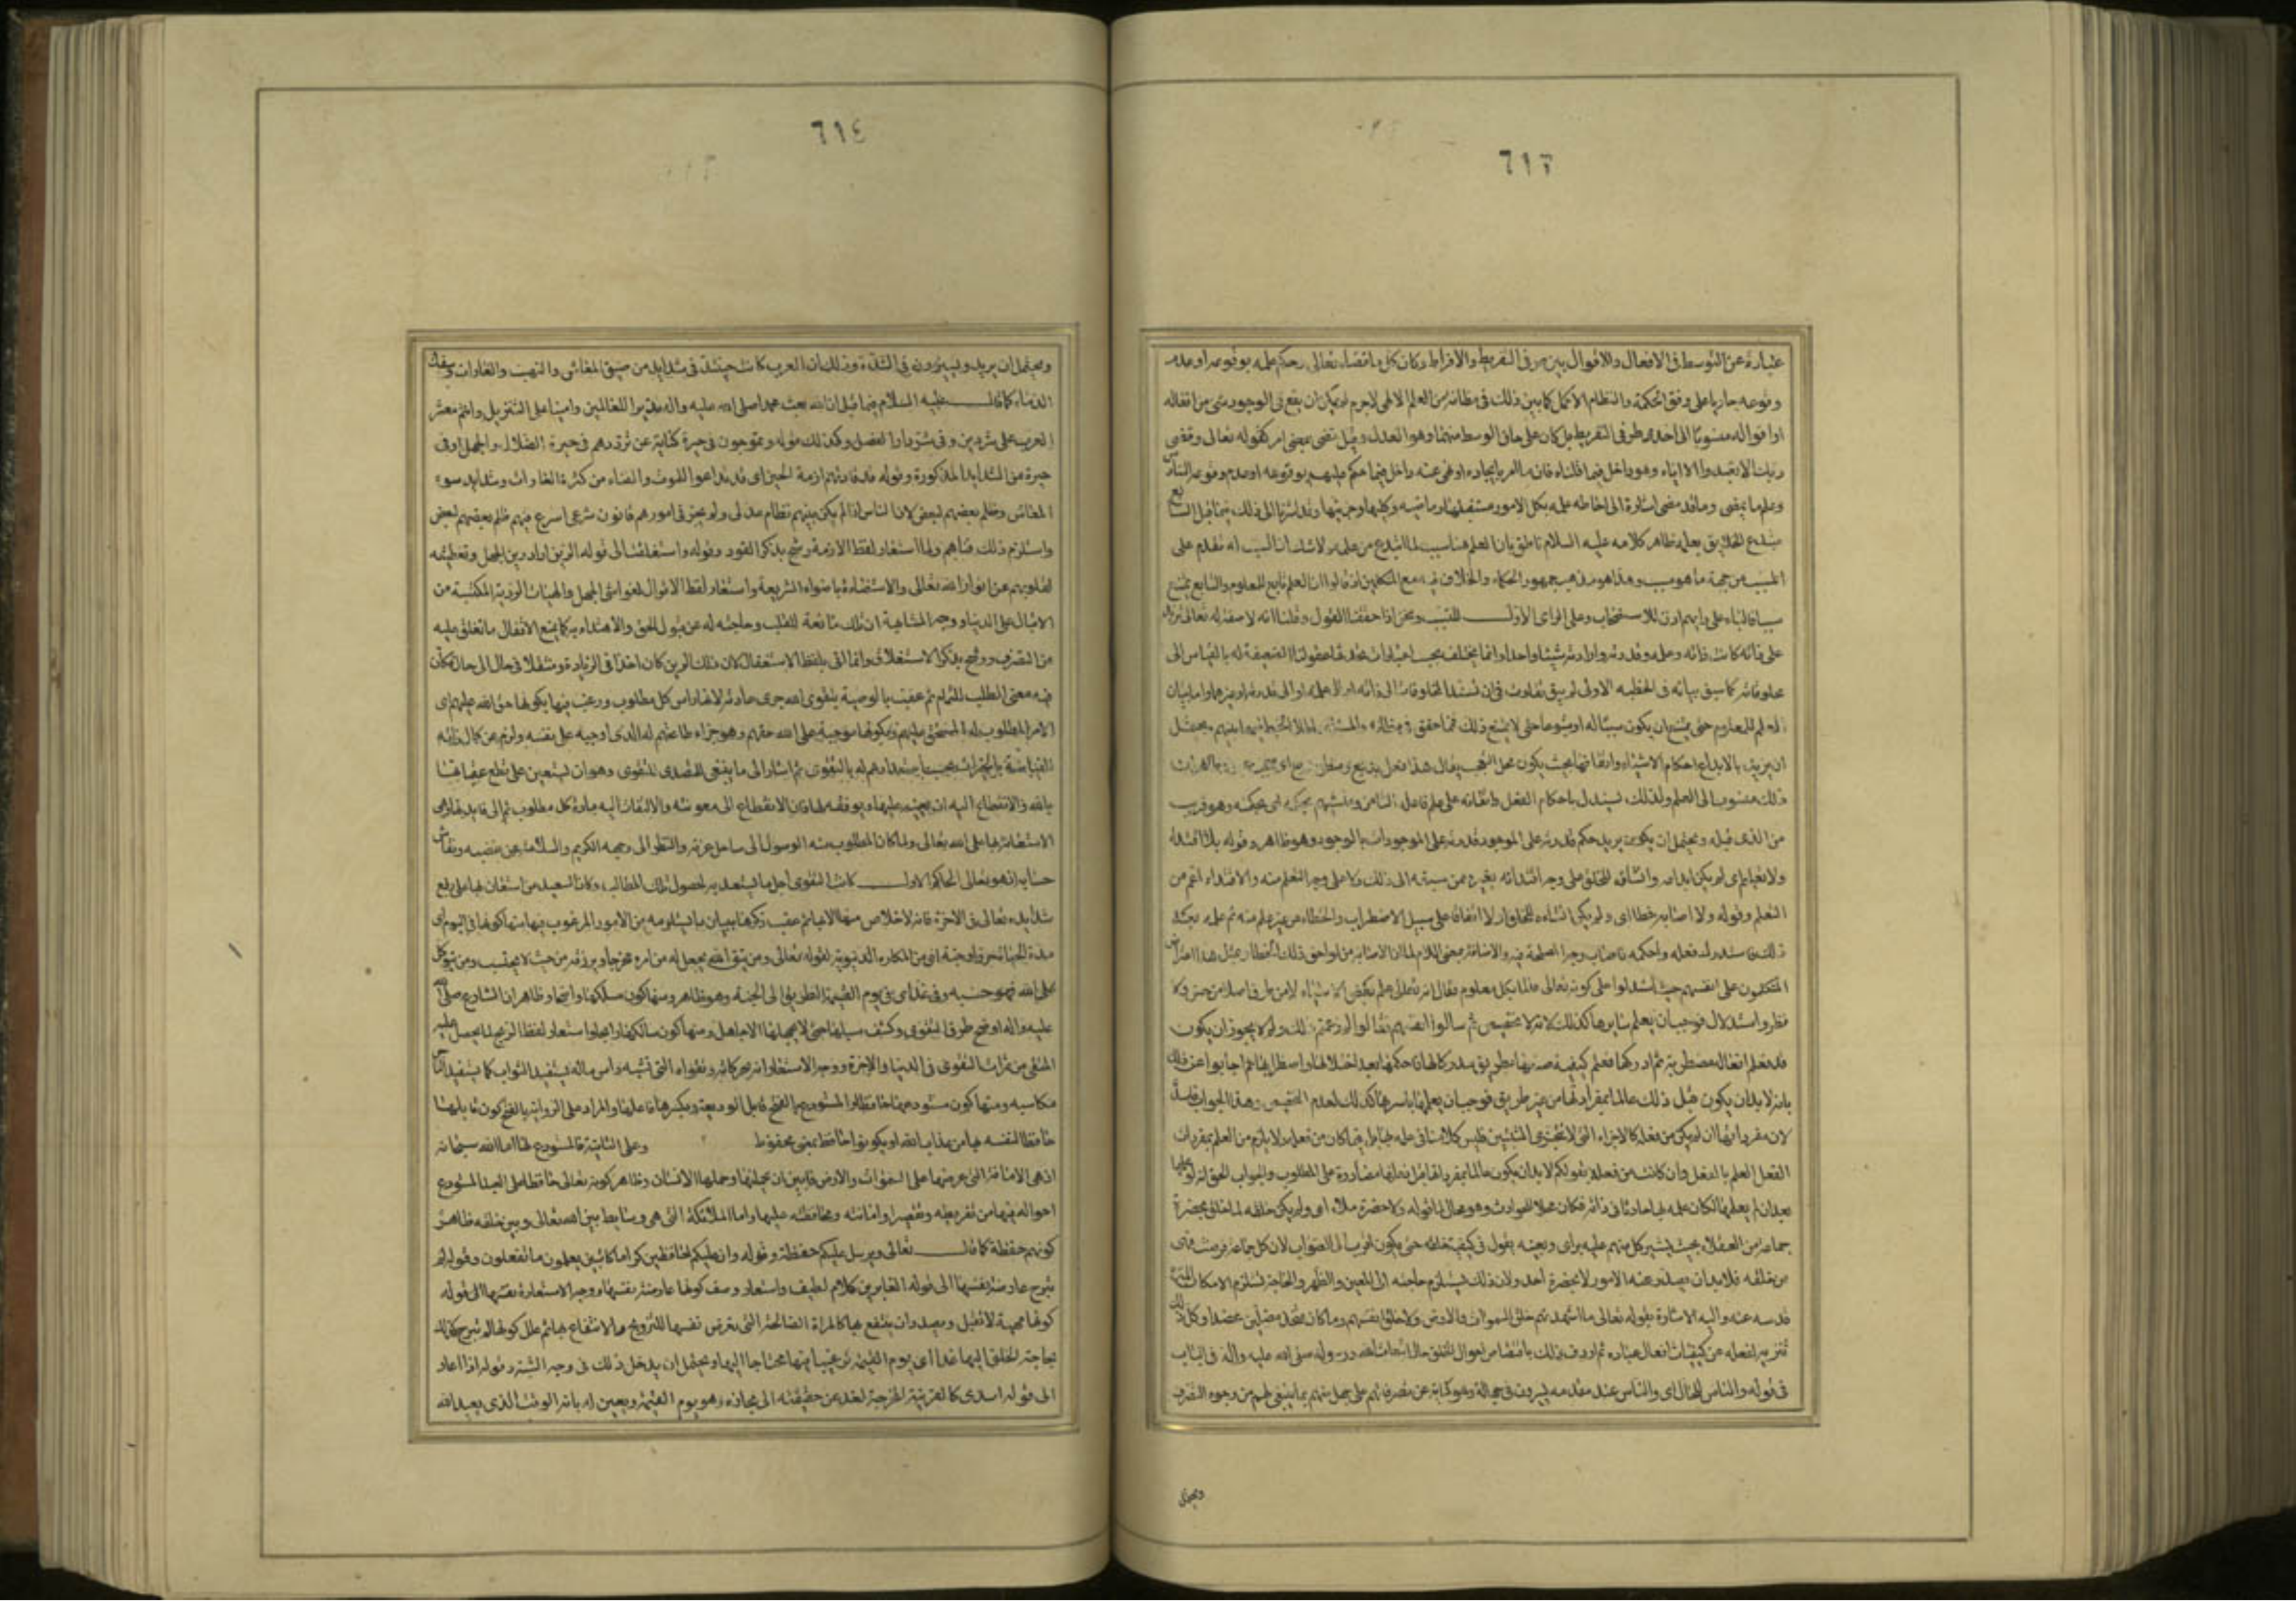 ٦١٣
عبارة عن التوسط فى الافعال والاقوال بين طرفى التفريط والافراط وكان كل ما قضاه تعالى وحكم علمه بوقوعه او عدم
وقوعه جاريا على وفق الحكمة والنظام الاكمل كما بين ذلك فى مظانه من العلم الالهى لاجرم لم يكن ان يقع فى الوجود شى من افعاله
او اقواله منسوبا الى احد طرفى التفريط بل كان على حاق الوسط منهما وهو العدل وقيل قضى بمعنى امر كقوله تعالى وقضى
ربك الا تعبدوا الا اياه وهو داخل فيما قلناه فان ما امر بايجاده او نهى عنه داخل فيما حكم عليهم بوقوعه او عدم وقوعه السادس
وعلم ما يمضى وما قد مضى اشارة الى احاطة علمه بكل الامور مستقبلها وماضيه وكليها وجزئيها وقد اشرنا الى ذلك فيما قبل السابع
مبتدع الخلايق بعلمه ظاهر كلامه عليه السلام ناطق بان العلم هنا سبب لما ابتدع من خلقه ولا شك ان السبب له تقدم على
المسبب من جهة ما هو سبب وهذا هو مذهب جمهور الحكماء والخلاف فيه مع المتكلمين اذ قالوا ان العلم تابع للمعلوم والتابع يمتنع
ان يكون سببا فالباء على رايهم اذن للاستصحاب وعلى الراى الاول للتسبب ونحن اذا حققنا القول وقلنا انه لا صفة له تعالى تزيد
على ذاته كانت ذاته وعلمه وقدرته وارادته شيئا واحدا وانما يختلف بحسب اعتبارات تحدثها عقولنا الضعيفة له بالقياس الى
مخلوقاته كما سبق بيانه فى الخطبه الاولى لم يبق تفاوت فى ان تستند المخلوقات الى ذاته او الى علمه او الى قدرته او غيرهما واما بيان
ان يريد بالابداع احكام الاشياء واتقانها بحيث يكون محل التعجب يقال هذا فعل بديع
ذلك منسوب الى العلم ولذلك يستدل باحكام الفعل واتقانه على علم فاعله الثامن ومنشيهم بحكمه اى بحكمته وهو قريب
من الذى قبله ويحتمل ان يكون يريد حكم قدرته على الموجود قدرته على الموجودات بالوجود وهو ظاهر وقوله بلا اقتداء
ولا تعليم اى لم يكن ابداعه وانشاؤه للخلق على وجه اقتدائه بغيره ممن سبقه الى ذلك ولا على وجه التعلم منه والاقتداء اعم من
التعلم وقوله ولا اصابة خطا اى ولم يكن انشاءه للخلق اولا اتفاقا على سبيل الاضطراب والخطاء من غير علم منه ثم علمه بعد
ذلك فاستدرك فعله واحكمه فاصاب وجه المصلحة فيه والاضافة بمعنى اللام لما ان الاصابة من لواحق ذلك الخطا وبمثل هذا اعترض
المتكلمون على انفسهم حيث استدلوا على كونه تعالى عالما بكل معلوم فقال انه تعالى علم بعض الاشياء لا من طريق اصلا من حس ولا
نظر واستدلال فوجب ان يعلم سايرها كذلك لانه لا تخصيص ثم سالوا انفسهم فقالوا لم زعمتم ذلك ولم لا يجوز ان يكون
قد فعل افعاله مضطربة ثم ادركها فعلم كيفية صنعها بطريق مدركا لها فاحكمها بعد اختلافها واضطرابها ثم اجابوا عن ذلك
بانه لا بد ان يكون قبل ذلك عالما بمفرداتها من غير طريق فوجب ان يعلمها باسرها كذلك لعدم التخصيص وهذا الجواب فاسد
لان مفرداتها ان لم يكن من فعله كالاجزاء التى لا تتجزى
الفعل العلم بالفعل وان كانت من فعله فقولكم لا بد ان يكون عالما بمفرداتها قبل فعلها مصادرة على المطلوب والجواب الحق
بعد ان لم يعلمها لكان علمه بها حادثا فى ذاته فكان محلا للحوادث وهو محال قوله ولا حضرة ملاء اى ولم يكن خلقه لما خلق بحضرة
جماعة من العقلاء بحيث يشير كل منهم عليه براى ويعينه بقول فى كيفية خلقه حتى يكون اقرب الى الصواب لان كل جماعة فرضت فهى
من خلقه فلا بد ان يصدر عنه الامور لا بحضرة احد ولان ذلك يستلزم حاجته الى المعين والظهير والحاجة تستلزم الامكان
قدسه عنه واليه الاشارة بقوله تعالى ما اشهدتهم خلق السموات والارض ولا خلق انفسهم وما كنت متخذ المضلين عضدا وكل ذلك
تنزيه لفعله عن كيفيات افعال عباده ثم اردف ذلك باقتصاص احوال الخلق حال انبعاث الله رسوله صلى الله عليه واله
فى قوله والناس الحال اى والناس عند مقدمه يسيرون فى جهالة وهو كناية عن تصرفاتهم على جهل منهم بما ينبغى لهم من وجوه التصرف
ويحتمل
٦١٤
ويحتمل ان يريد ويسيرون فى الشدة وذلك ان العرب كانت حينئذ فى شدايد من ضيق المعاش والنهب والغارات وسفك
الدماء كما قال عليه السلام فيما قبل ان الله بعث محمدا صلى الله عليه واله نذيرا للعالمين وامينا على التنزيل وانتم معشر
العرب على شر دين وفى شر دار الفصل وكذلك قوله ويموجون فى حيرة كناية عن ترددهم فى حيرة الضلال والجهل او فى
حيرة من الشدايد المذكورة وقوله قد قادتهم ازمة الحين اى قد تداعوا للموت والفناء من كثرة الغارات وشدايد سوء
المعاش وظلم بعضهم لبعض لان الناس اذا لم يكن بينهم نظام عدلى ولم يجر فى امورهم قانون شرعى اسرع فيهم ظلم بعضهم لبعض
واستلزم ذلك فناهم ولما استعار لفظ الازمة رشح بذكر القود وقوله واستغلقت الى قوله الرين اراد رين الجهل وتغطيته
لقلوبهم عن انوار الله تعالى والاستضاءة باضواء الشريعة واستعار لفظ الاقفال لغواشى الجهل والهيئات الردية المكتسبة من
الاقبال على الدنيا ووجه المشابهة ان تلك مانعة للقلب وحاجبة له عن قبول الحق والاهتداء به كما يمنع الاقفال ما تغلق عليه
من التصرف ورشح بذكر الاستغلاق وانما اتى بلفظ الاستفعال لان ذلك الرين كان اخذا فى الزيادة ومنتقلا فى حال الى حال فكان
فيه معنى الطلب للتمام ثم عقب بالوصية بتقوى الله جرى عادته لانها راس كل مطلوب ورغب فيها بكونها حق الله عليهم اى
الامر المطلوب له المستحق عليهم وبكونها موجبة على الله حقهم وهو جزاء طاعتهم له الذى اوجبه على نفسه ولزم عن كمال ذاته
الفياضة بالخيرات بحسب استعدادهم له بالتقوى ثم اشار الى ما ينبغى للمتصدى للتقوى وهو ان يستعين على قطع عقباتها
بالله والانقطاع اليه ان يعينه عليها ويوفقه لها فان الانقطاع الى معونته والالتفات اليه مادة كل مطلوب ثم الى فايدتها وهى
الاستعانة بها على الله تعالى ولما كان المطلوب منه الوصول الى ساحل عزته والنظر الى وجهه الكريم والسلامة من غضبه ونقاش
حسابه اذ هو تعالى الحاكم الاول كانت التقوى اجل ما يستعد به لحصول تلك المطالب وكان السعيد من استعان بها على دفع
شدايده تعالى فى الاخرة فانه لا خلاص منها الا بها ثم عقب ذكرها ببيان ما يستلزمه من الامور المرغوب فيها منها كونها فى اليوم اى
مدة الحياة حرزا وجنة اى من المكاره الدنيوية لقوله تعالى ومن يتق الله يجعل له من امره مخرجا ويرزقه من حيث لا يحتسب ومن يتوكل
على الله فهو حسبه وفى غد اى فى يوم القيمة الطريق الى الجنة وهو ظاهر ومنها كون مسلكها واضحا وظاهر ان الشارع صلى الله
عليه واله اوضح طرق التقوى وكشف سبيلها حتى لا يجهلها الا جاهل ومنها كون سالكها رابحا واستعار لفظ الربح لما يحصل عليه
المتقى من ثمرات التقوى فى الدنيا والاخرة ووجه الاستعارة انه بحركاته وتقواه التى تشبه راس ماله يستفيد الثواب كما يستفيد التاجر
مكاسبه ومنها كون مستودعها حافظا والمستودع بالفتح قابل الوديعة وبكسرها فاعلها والمراد على الرواية بالفتح كون قابلها
حافظا لنفسه بها من عذاب الله او يكون حافظا بمعنى محفوظ وعلى الثانية فالمستودع لها اما الله سبحانه
اذ هى الامانة التى عرضها على السموات والارض فابين ان يحملنها وحملها الانسان وظاهر كونه تعالى حافظا على العبد المستودع
احواله فيها من تفريطه وتقصيره وامانته ومحافظته عليها واما الملائكة التى هى وسايط بين الله تعالى وبين خلقه وظاهر
كونهم حفظة كما قال تعالى ويرسل عليكم حفظة وقوله وان عليكم لحافظين كراما كاتبين يعلمون ما تفعلون وقوله لم
تبرح عارضة نفسها الى قوله الغابرين كلام لطيف واستعار وصف كونها عارضة نفسها ووجه الاستعارة
كونها مهيئة لان تقبل وبصدد ان ينتفع بها كالمراة الصالحة التى تعرض نفسها للتزويج والانتفاع بها ثم علل كونها لم تبرح كذلك
بحاجة الخلق اليها غدا اى يوم القيمة ترغيبا فيها محتاجا اليها ويحتمل ان يدخل ذلك فى وجه الشبه وقوله اذا اعاد
الى قوله اسدى كالقرينة المخرجة لغد عن حقيقته الى مجازه وهو يوم القيمة وتعيين له بانه الوقت الذى يعيد الله